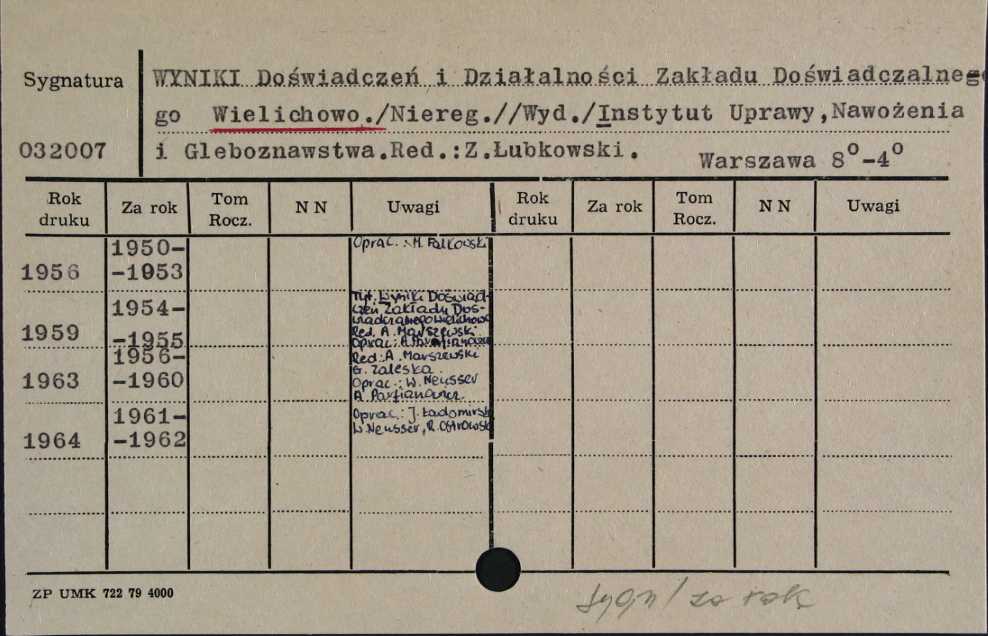 Sygnatura
WYNIKI Doświadczeń i Działalności Zakładu Doświadczalnego
go Wielichowo./Niereg.//Wyd./Instytut Uprawy,Nawożenia
032007
i Gleboznawstwa.Red.:Z.Łubkowski.
Warszawa 8°-4°
Rok druku Za rok Tom Rocz. N N Uwagi Rok druku Za rok Tom Rocz. N N Uwagi
1956 1950-
-1953
Oprac.: M. Falkowski
1959 1954-
-1955
Tyt. Wyniki Doświad-
czeń Zakładu Doś-
wiadczalnego Wielichowo
Red. A. Marszewski
Oprac.: A. Parfianowicz
1963 1956-
-1960
Red.: A. Marszewski
G. Zaleska
Oprac.: W. Neusser
A. Parfianowicz
1964 1961-
-1962
Oprac.: J. Ładomirski
W. Neusser, R. Ostrowski
ZP UMK 722 79 4000
sygn/za rok